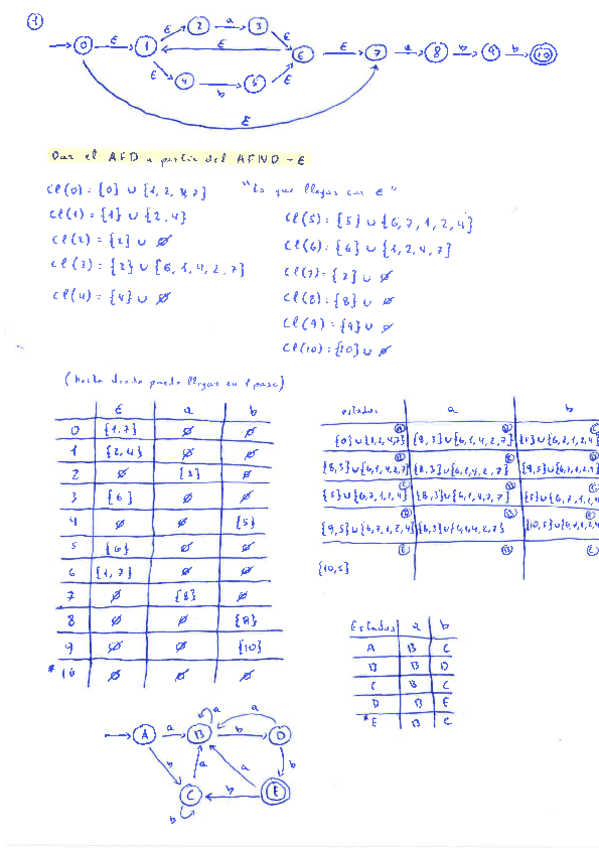 1
0 ε 1 ε 2 a 3 ε 6 ε 7 a 8 b 9 b 10
ε
ε 4 b 5 ε
ε
Dar el AFD a partir del AFND-ε
cl(0) = {0} ∪ {1, 2, 4, 7} "Lo que llegas con ε"
cl(1) = {1} ∪ {2, 4}
cl(2) = {2} ∪ ∅
cl(3) = {3} ∪ {6, 1, 4, 2, 7}
cl(4) = {4} ∪ ∅
cl(5) = {5} ∪ {6, 7, 1, 2, 4}
cl(6) = {6} ∪ {1, 2, 4, 7}
cl(7) = {7} ∪ ∅
cl(8) = {8} ∪ ∅
cl(9) = {9} ∪ ∅
cl(10) = {10} ∪ ∅
(Hasta donde puedo llegar en 1 paso)
ε a b
0 {1, 7} ∅ ∅
1 {2, 4} ∅ ∅
2 ∅ {3} ∅
3 {6} ∅ ∅
4 ∅ ∅ {5}
5 {6} ∅ ∅
6 {1, 7} ∅ ∅
7 ∅ {8} ∅
8 ∅ ∅ {9}
9 ∅ ∅ {10}
* 10 ∅ ∅ ∅
estados a b
A B C
{0} ∪ {1, 2, 4, 7} {8, 3} ∪ {6, 1, 4, 2, 7} {5} ∪ {6, 7, 1, 2, 4}
B B D
{8, 3} ∪ {6, 1, 4, 2, 7} {8, 3} ∪ {6, 1, 4, 2, 7} {9, 5} ∪ {6, 7, 1, 2, 4}
C B C
{5} ∪ {6, 7, 1, 2, 4} {8, 3} ∪ {6, 1, 4, 2, 7} {5} ∪ {6, 7, 1, 2, 4}
D B E
{9, 5} ∪ {6, 7, 1, 2, 4} {8, 3} ∪ {6, 1, 4, 2, 7} {10, 5} ∪ {6, 7, 1, 2, 4}
E B C
{10, 5}
Estados a b
A B C
B B D
C B C
D B E
* E B C
a a
A a B b D
b a a b
C b E
b